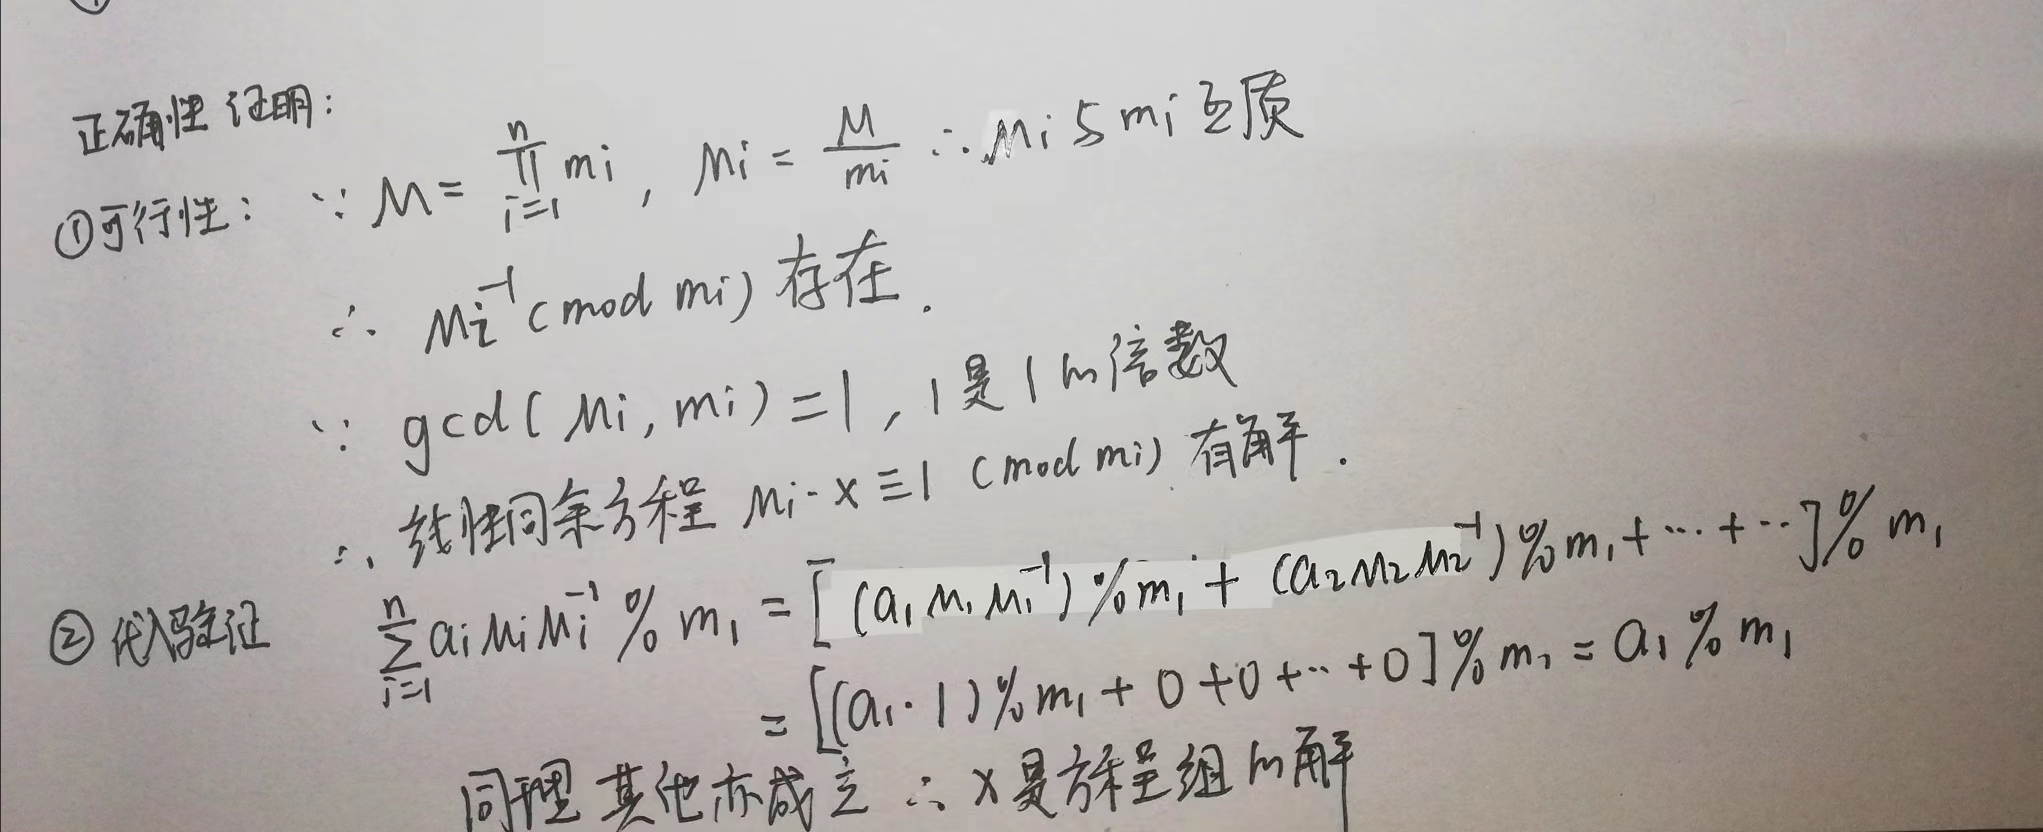 正确性证明:
①可行性: ∵ M = ∏_{i=1}^{n} mi, Mi = M/mi ∴ Mi与mi互质
∴ Mi⁻¹ (mod mi) 存在.
∵ gcd(Mi, mi) = 1, 1是1的倍数
∴ 线性同余方程 Mi·x ≡ 1 (mod mi) 有解.
② 代入验证 ∑_{i=1}^{n} ai Mi Mi⁻¹ % m₁ = [(a₁M₁M₁⁻¹)%m₁ + (a₂M₂M₂⁻¹)%m₁ + ··· + ···]%m₁
= [(a₁·1)%m₁ + 0 + 0 + ··· + 0]%m₁ = a₁%m₁
同理其他亦成立 ∴ x是方程组的解